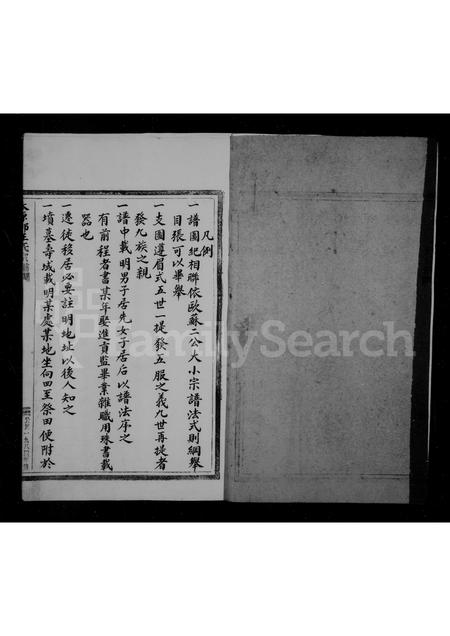 凡例
一譜圖紀相聯依歐蘇二公大小宗譜法式則綱舉
目張可以畢舉
一支圖遵眉式五世一提發五服之義九世再提者
發九族之親
一譜中載明男子居先女子居后以譜法序之
有前程者書某年娶進貢監畢業雜職用珠書載
器也
一遷徙移居必要註明地址以後人知之
一墳墓壽城載明某處某地坐向四至祭田使附於
FamilySearch